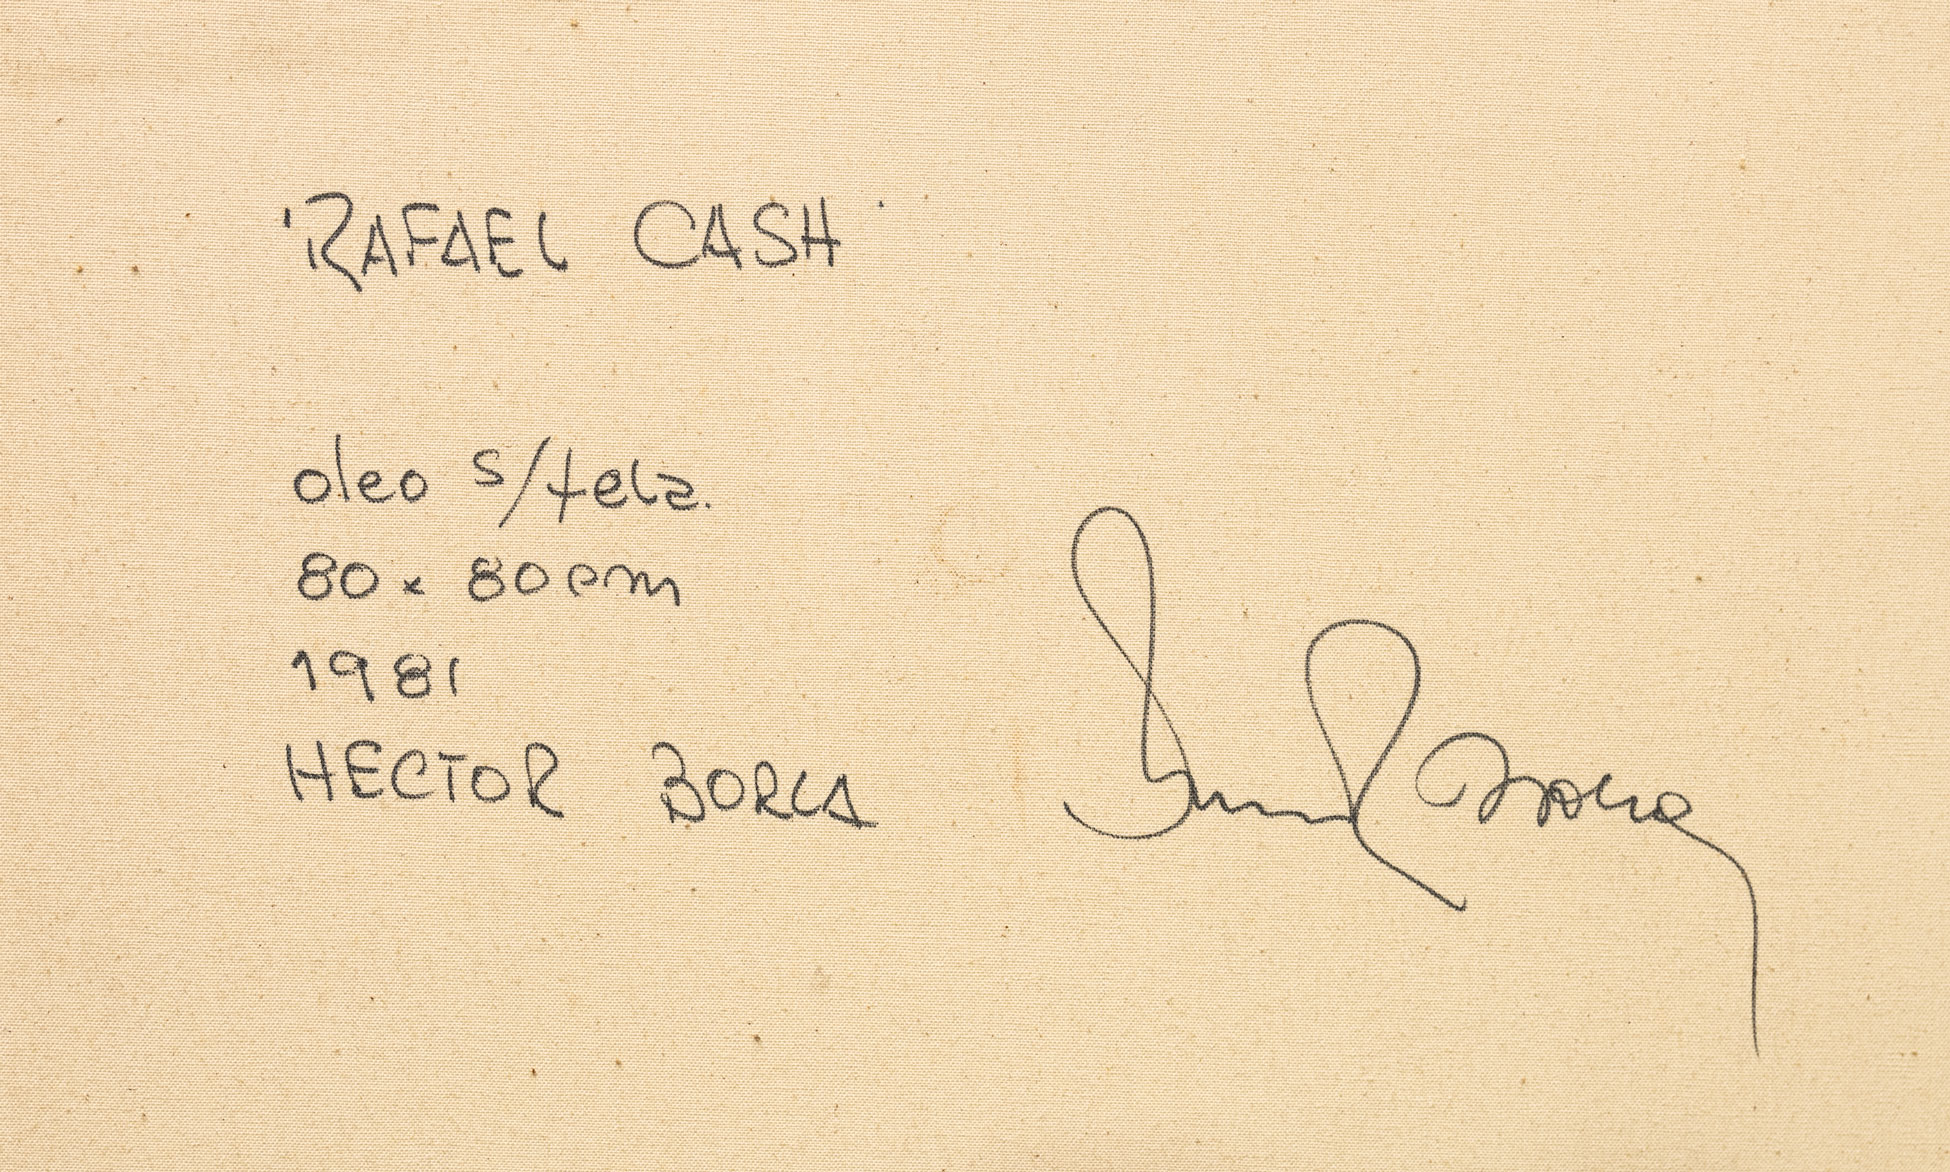 'RAFAEL CASH'
oleo s/tela.
80 x 80 cm
1981
HECTOR BORLA